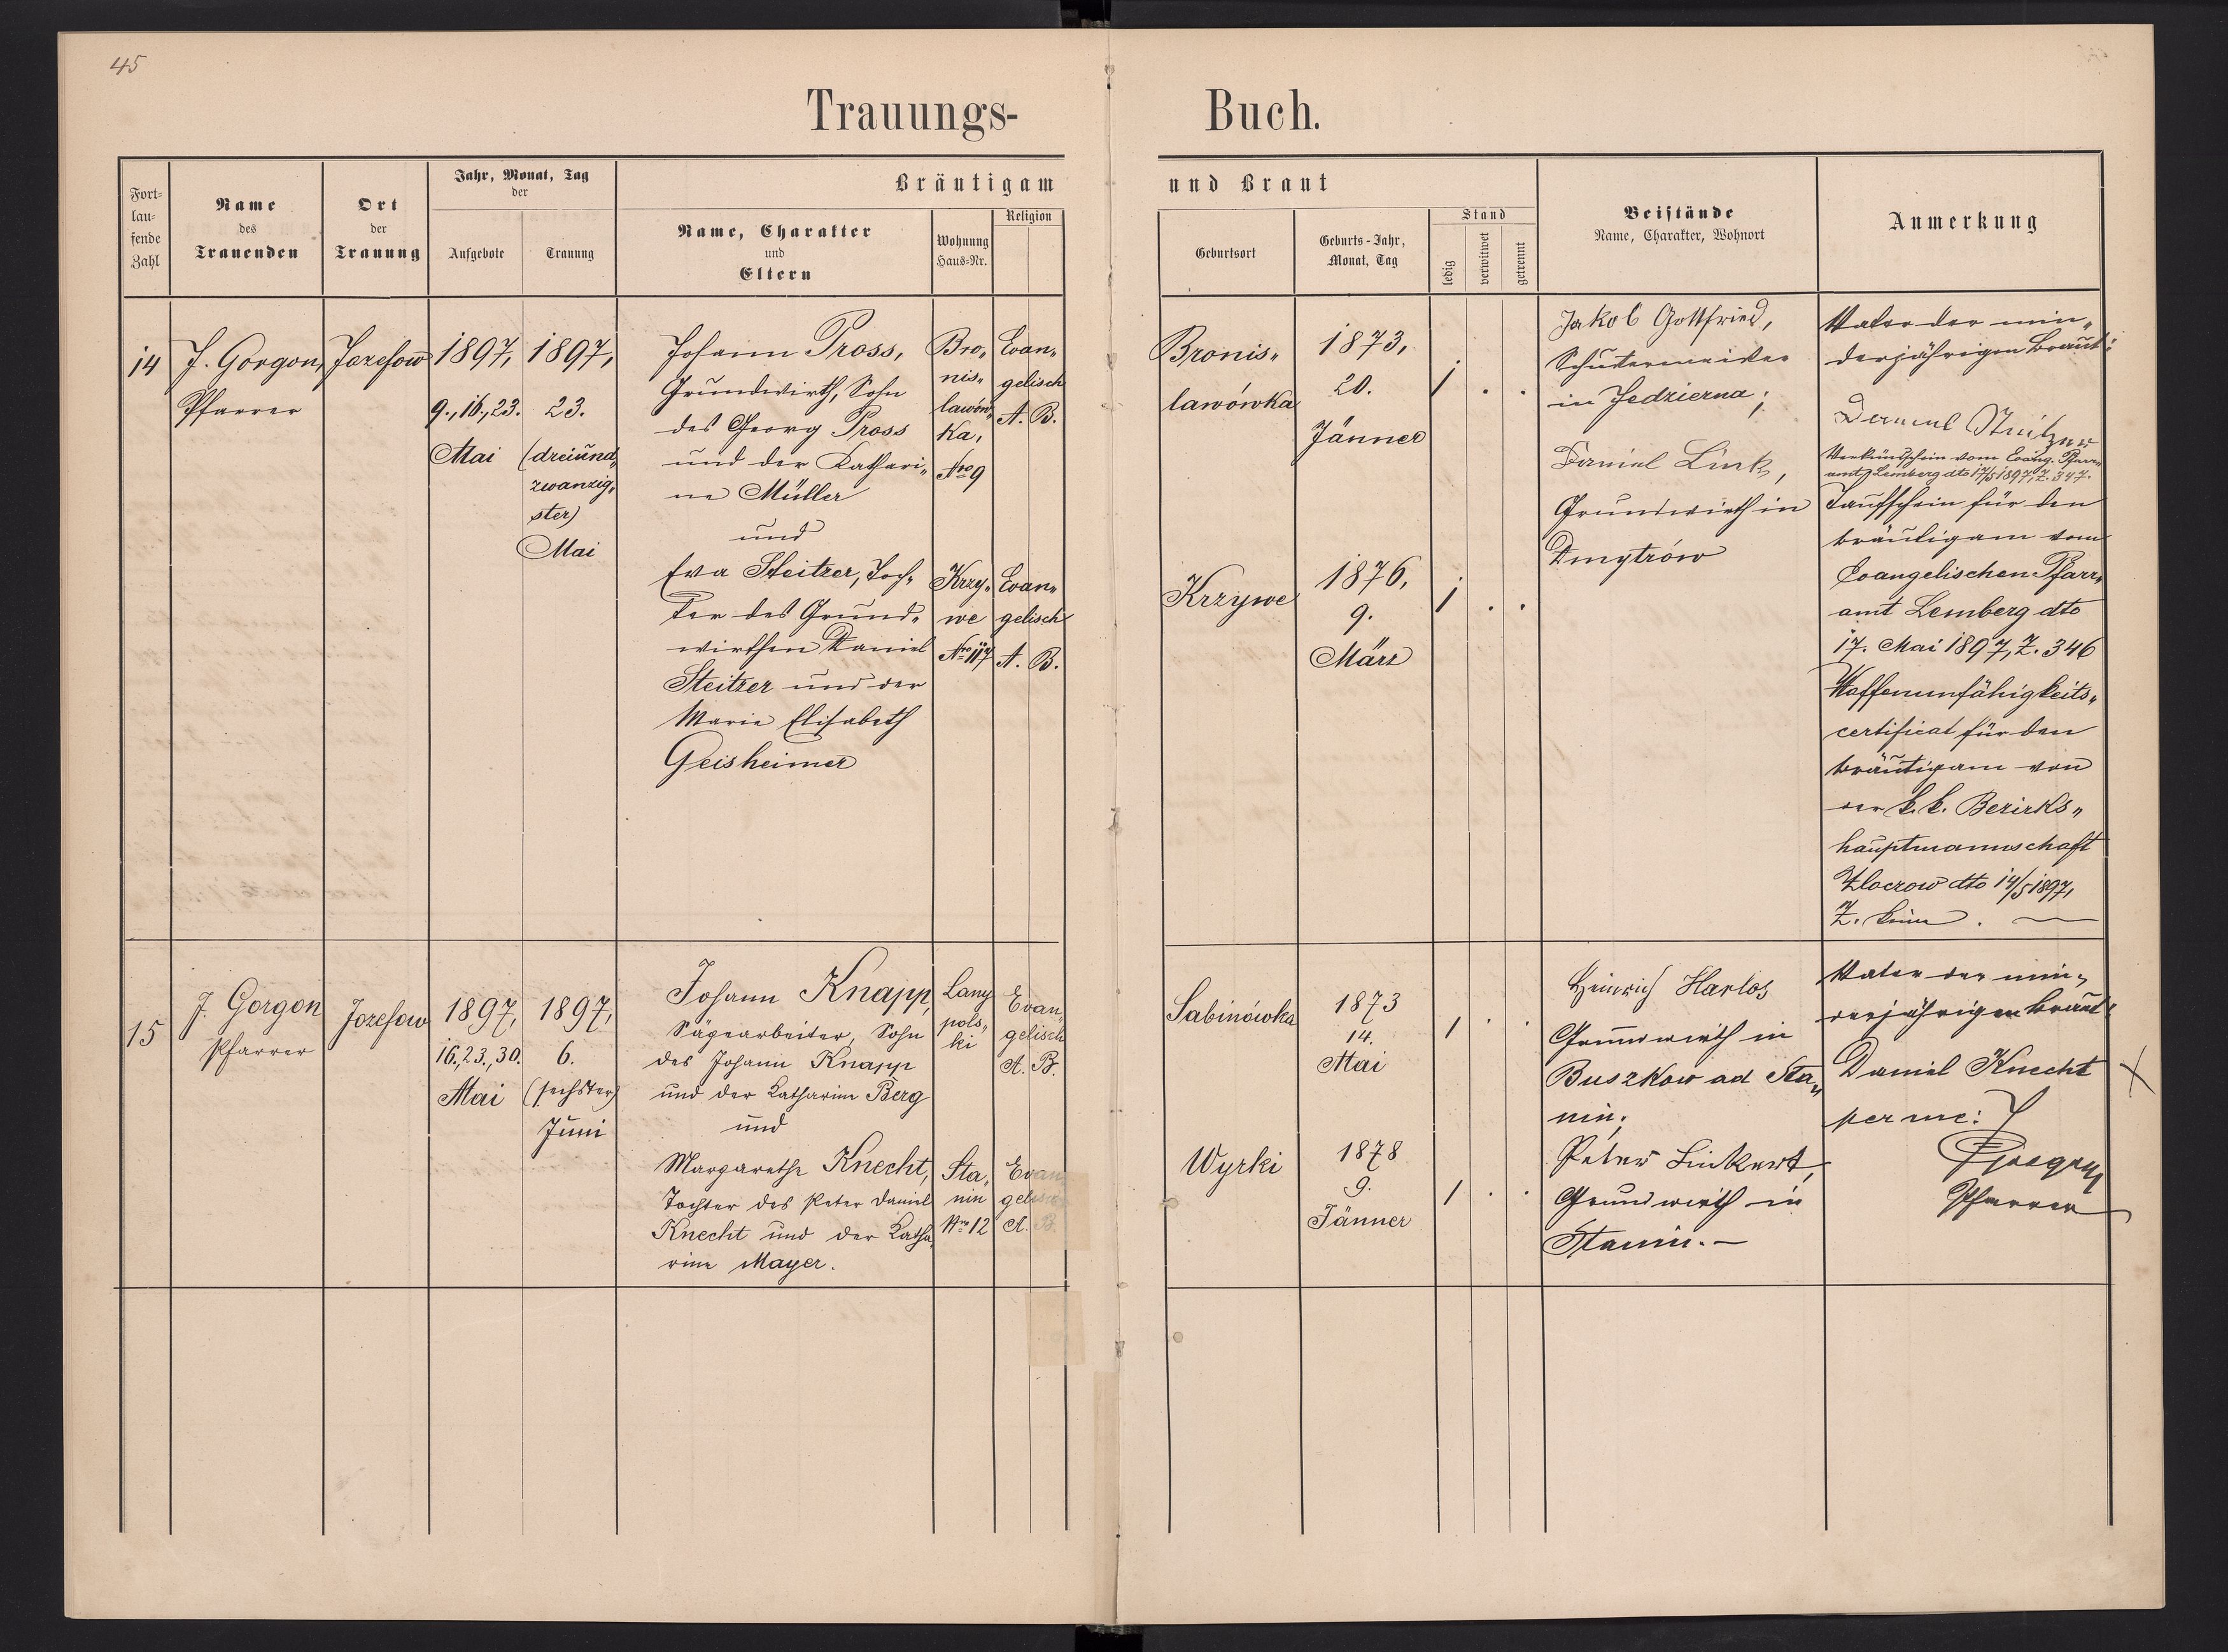 45
Trauungs-
Buch.
Fort-
lau-
fende
Zahl
Name
des
Trauenden
Ort
der
Trauung
Jahr, Monat, Tag
der
Aufgebote
Trauung
Bräutigam
Name, Charakter
und
Eltern
Wohnung
Haus-Nr.
Religion
und Braut
Geburtsort
Geburts-Jahr,
Monat, Tag
Stand
ledig
verwitwet
getrennt
Beistände
Name, Charakter, Wohnort
Anmerkung
14
J. Gorgon,
Pfarrer
Jozefow
1897,
9., 16., 23.
Mai
1897,
23.
(dreiund„
zwanzig„
ster)
Mai
Johann Pross,
Grundwirth, Sohn
des Georg Pross
und der Kathari„
ne Müller
und
Eva Steitzer, Toch„
ter des Grund„
wirthen Daniel
Steitzer und der
Marie Elisabeth
Geisheimer
Bro„
nis„
lawów„
ka,
Nro 9
Krzy„
we
Nro 117
Evan„
gelisch
A. B.
Evan„
gelisch
A. B.
Bronis„
lawówka
Krzywe
1873,
20.
Jänner
1876,
9.
März
1 . .
1 . .
Jakob Gottfried,
in Jedzierna;
Daniel Link,
Grundwirth in
Dmytrów
Vater der min„
derjährigen Braut:
Daniel Steitzer
Verkündschein vom Evang. Pfarr„
amt Lemberg dto 17/5 1897, Z. 347.
Taufschein für den
Bräutigam vom
Evangelischen Pfarr„
amt Lemberg dto
17. Mai 1897, Z. 346
Waffenunfähigkeits„
certificat für den
Bräutigam von
der k. k. Bezirks„
hauptmannschaft
Złoczow dto 14/5 1897,
Z. keine.
15
J. Gorgon
Pfarrer
Jozefow
1897,
16., 23., 30.
Mai
1897,
6.
(sechster)
Juni
Johann Knapp,
Sägearbeiter, Sohn
des Johann Knapp
und der Katharine Berg
und
Margarethe Knecht,
Tochter des Peter Daniel
Knecht und der Katha„
rine Mayer.
Lany
pols„
ki
Sta„
nin
Nro 12
Evan„
gelisch
A. B.
Evan
gelisch
A. B.
Sabinówka
Wyrki
1873
14.
Mai
1878
9.
Jänner
1 . .
1 . .
Heinrich Harlos
Grundwirth in
Buszkow ad Sta„
nin;
Peter Linkert,
Grundwirth in
Stanin. —
Vater der min„
derjährigen Braut:
Daniel Knecht
per me: J
Gorgon
Pfarrer
X